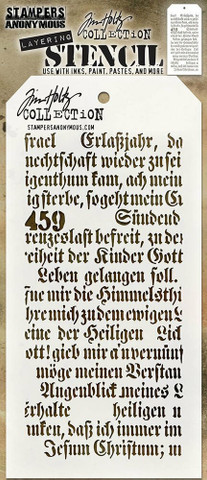 STAMPERS
ANONYMOUS
LAYERING
STENCIL
Tim Holtz
COLLECTION
USE WITH INKS, PAINT, PASTES, AND MORE
Tim Holtz
COLLECTION
STAMPERSANONYMOUS.COM
srael Erlaßjahr, da
nechtschaft wieder zu sei
igenthum kam, ach mein
ig sterbe, so geht mein Ei
459 Sündend
renzeslast befreit, zu de
reiheit der Kinder Gott
Leben gelangen soll.
ne mir die Himmelsthi
hre mich zu dem ewigen L
eine der Heiligen Lid
ott! gieb mir a vernünf
möge meinen Verstan
Augenblick meines L
Erhalte heiligen u
unken, daß ich immer im
Jesum Christum; m